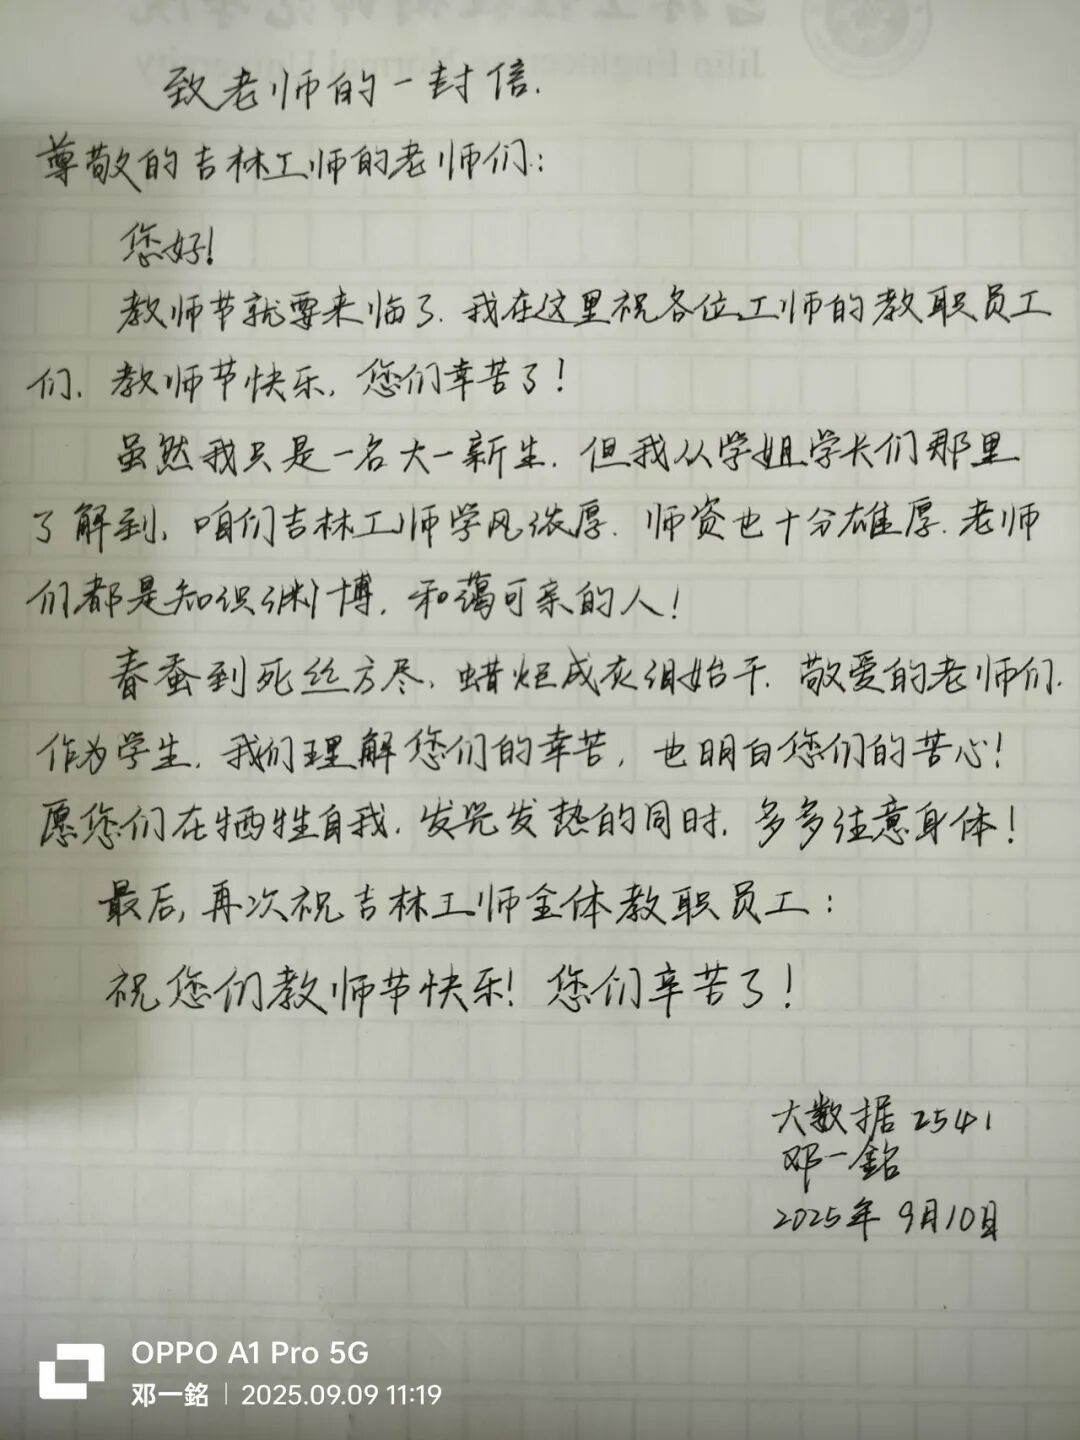 致老师的一封信.
尊敬的吉林工师的老师们:
您好!
教师节就要来临了.我在这里祝各位工师的教职员工
们、教师节快乐,您们幸苦了!
虽然我只是一名大一新生.但我从学姐学长们那里
了解到、咱们吉林工师学风浓厚.师资也十分雄厚.老师
们都是知识渊博,和蔼可亲的人!
春蚕到死丝方尽,蜡炬成灰泪始干.敬爱的老师们.
作为学生.我们理解您们的幸苦,也明白您们的苦心!
愿您们在牺牲自我.发光发热的同时.多多注意身体!
最后,再次祝吉林工师全体教职员工:
祝您们教师节快乐!您们辛苦了!
大数据2541
邓一銘
2025年9月10日
OPPO A1 Pro 5G
邓一銘 | 2025.09.09 11:19